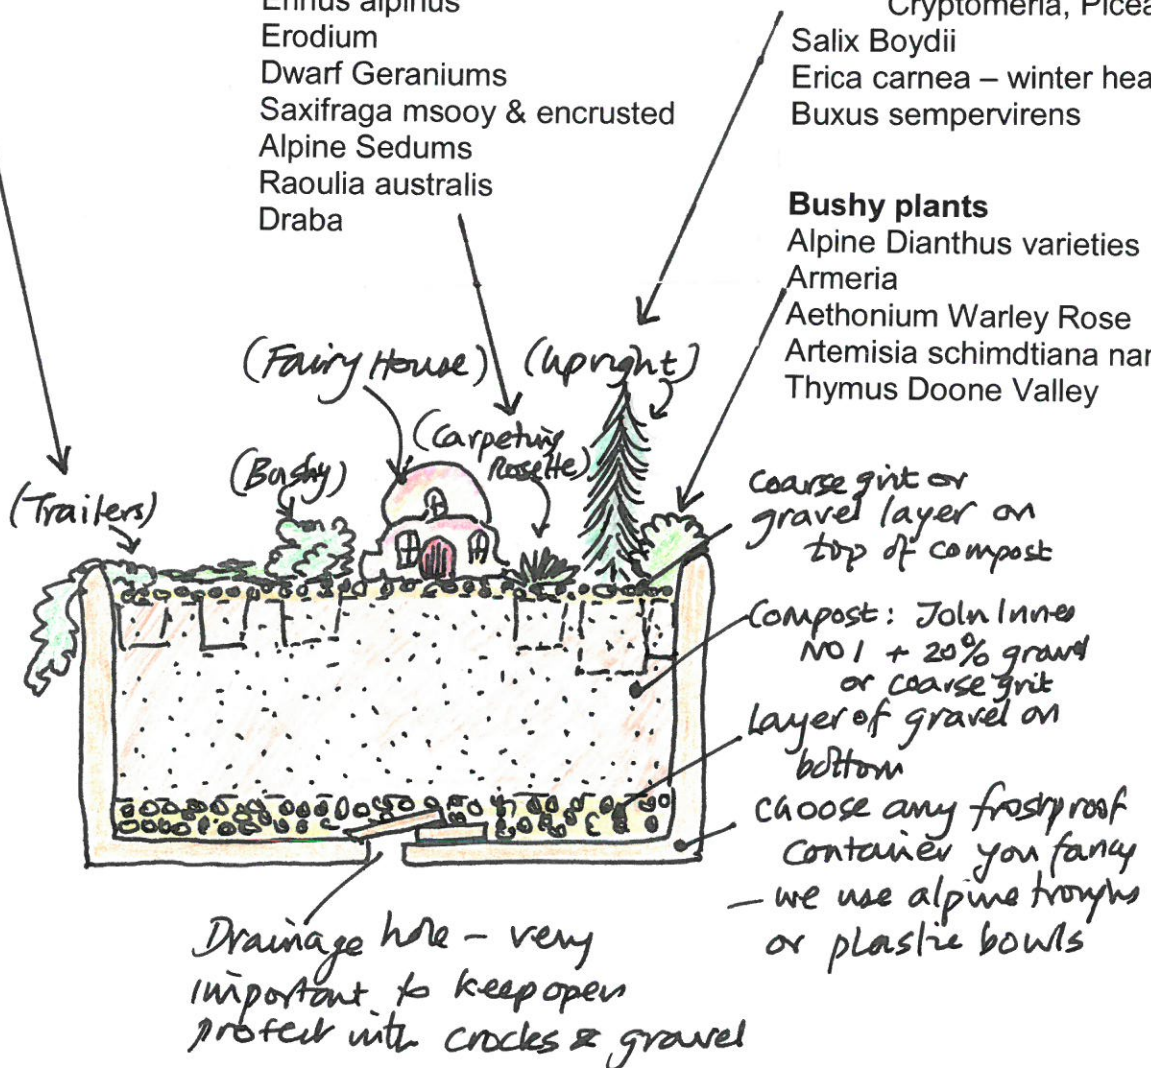 Erinus alpinus
Erodium
Dwarf Geraniums
Saxifraga msooy & encrusted
Alpine Sedums
Raoulia australis
Draba
Cryptomeria, Picea
Salix Boydii
Erica carnea – winter hea
Buxus sempervirens
Bushy plants
Alpine Dianthus varieties
Armeria
Aethonium Warley Rose
Artemisia schimdtiana nan
Thymus Doone Valley
(Fairy House)
(Upright)
(Carpeting
Rosette)
(Bushy)
(Trailers)
Coarse grit or
gravel layer on
top of compost
Compost: John Innes
NO 1 + 20% gravel
or coarse grit
Layer of gravel on
bottom
Choose any frostproof
container you fancy
– we use alpine troughs
or plastic bowls
Drainage hole – very
important to keep open
protect with crocks & gravel